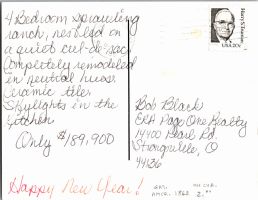 4 Bedroom sprawling
ranch, nestled on
a quiet cul-de-sac
Completely remodeled
in neutral hues.
Ceramic tile.
Skylights in the
kitchen
Only $189,900
Happy New Year!
Harry S. Truman
USA 20c
Bob Black
ERA Page One Realty
14400 Pearl Rd.
Strongsville, O
44136